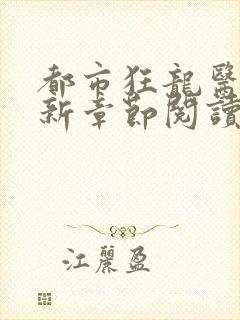 都市狂龍醫
新章節閱讀
江麗盈